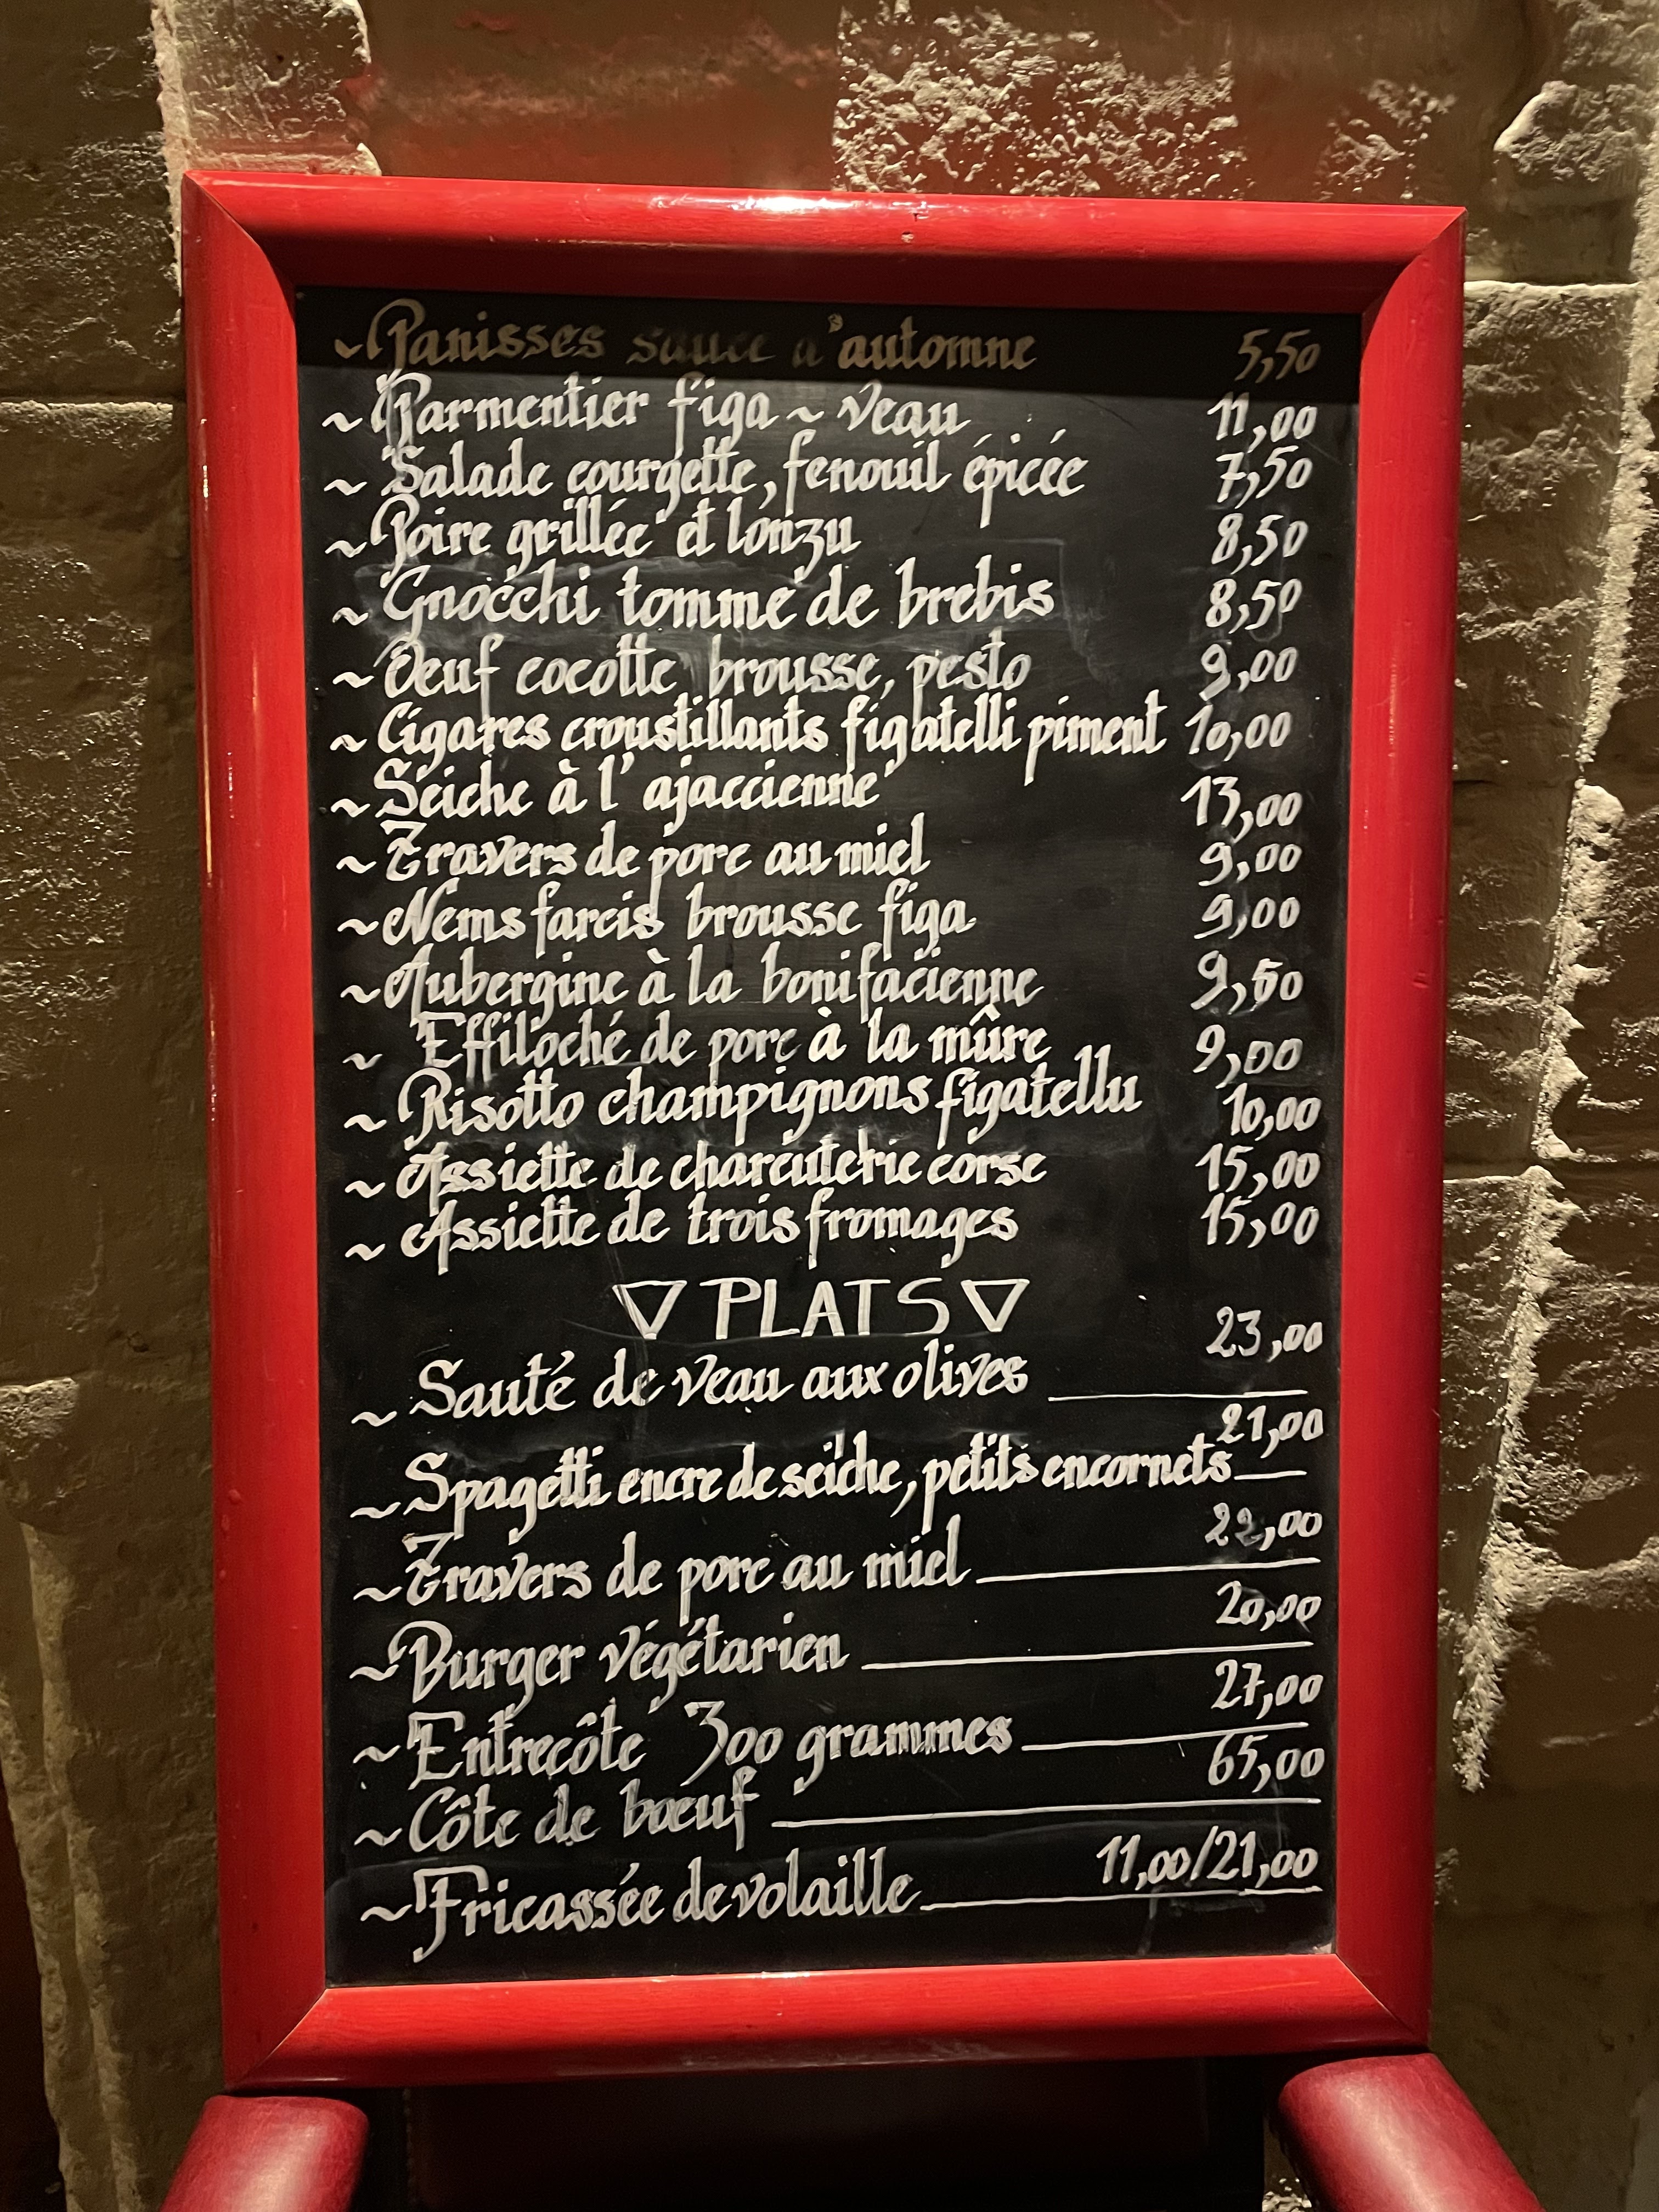 ~ Panisses sauce d'automne 5,50
~ Parmentier figa ~ veau 11,00
~ Salade courgette, fenouil épicée 7,50
~ Poire grillée et lonzu 8,50
~ Gnocchi tomme de brebis 8,50
~ Oeuf cocotte brousse, pesto 9,00
~ Cigares croustillants figatelli piment 10,00
~ Seiche à l'ajaccienne 13,00
~ Travers de porc au miel 9,00
~ Nems farcis brousse figa 9,00
~ Aubergine à la bonifacienne 9,50
~ Effiloché de porc à la mûre 9,00
~ Risotto champignons figatellu 10,00
~ Assiette de charcuterie corse 15,00
~ Assiette de trois fromages 15,00
▽ PLATS ▽
~ Sauté de veau aux olives 23,00
~ Spagetti encre de seiche, petits encornets 21,00
~ Travers de porc au miel 22,00
~ Burger végétarien 20,00
~ Entrecôte 300 grammes 27,00
~ Côte de bœuf 65,00
~ Fricassée de volaille 11,00/21,00